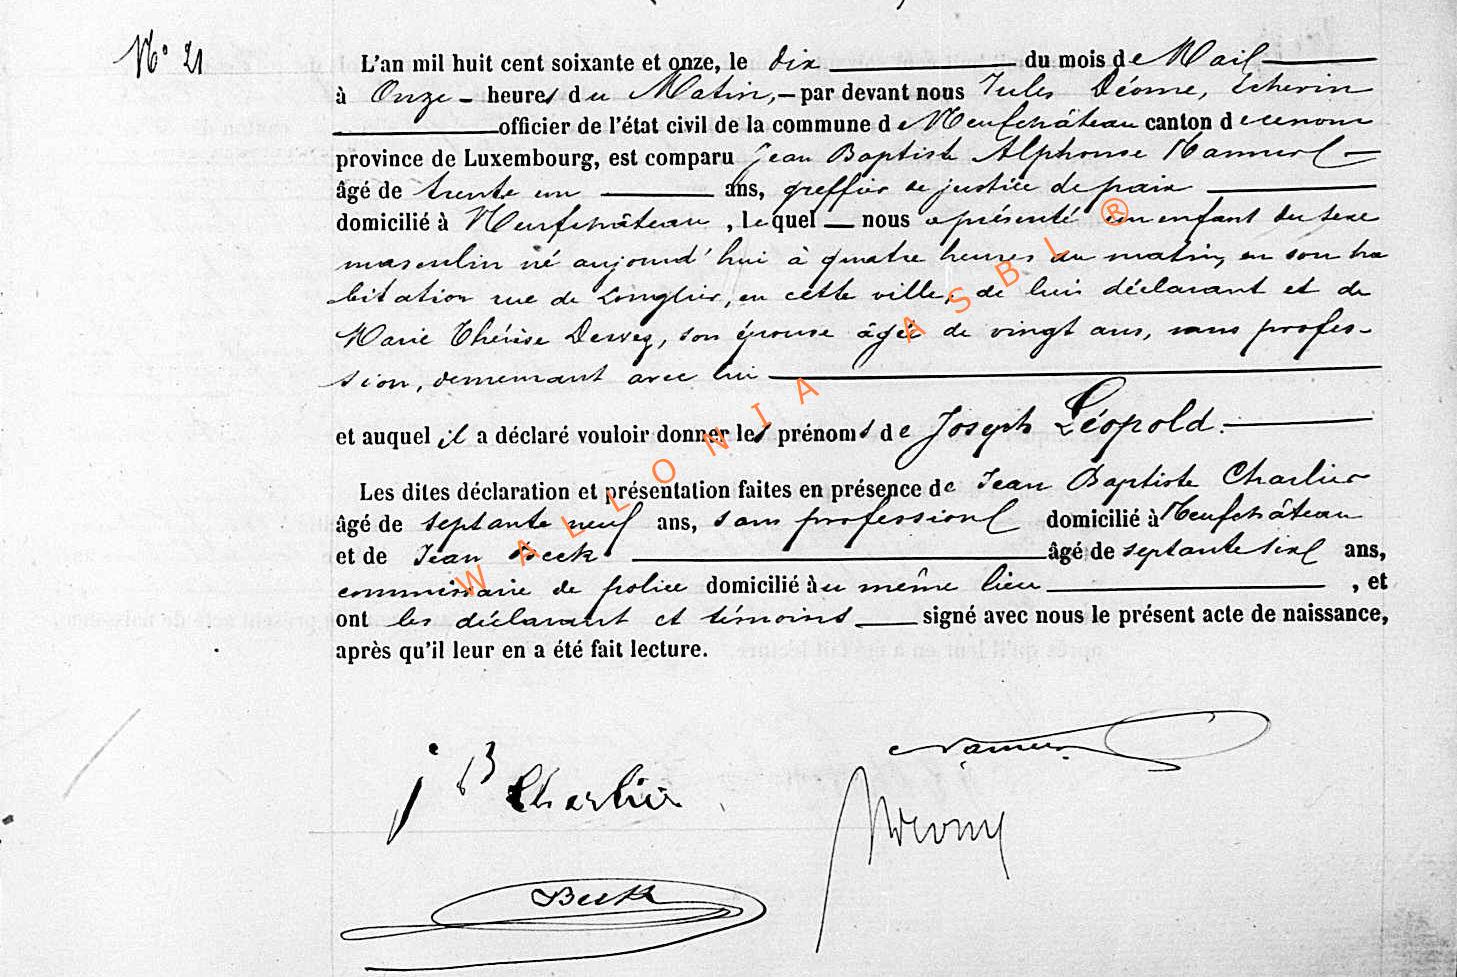 N° 21
L'an mil huit cent soixante et onze, le dix du mois de Mai
à Onze heures du Matin, par devant nous Jules Déome, Echevin
officier de l'état civil de la commune de Neufchâteau canton de
province de Luxembourg, est comparu Jean Baptiste Alphonse Namur
âgé de trente un ans, greffier de justice de paix
domicilié à Neufchâteau, lequel nous a présenté un enfant du sexe
masculin né aujourd'hui à quatre heures du matin, en son ha
bitation rue de Longlier, en cette ville, de lui déclarant et de
Marie Thérèse Dewez, son épouse âgée de vingt ans, sans profes-
sion, demeurant avec lui
et auquel il a déclaré vouloir donner les prénoms de Joseph Léopold.
Les dites déclaration et présentation faites en présence de Jean Baptiste Charlier
âgé de septante neuf ans, sans profession domicilié à Neufchâteau
et de Jean Beck âgé de septante six ans,
commissaire de police domicilié au même lieu, et
ont les déclarant et témoins signé avec nous le présent acte de naissance,
après qu'il leur en a été fait lecture.
WALLONIA ASBL ®
Namur
J B Charlier
JDeome
Beck